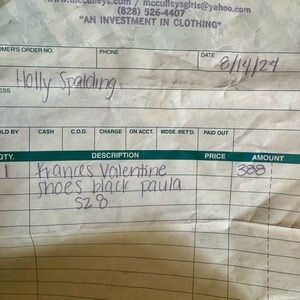 www.mcculleys.com / mcculleysgirls@yahoo.com
(828) 526-4407
"AN INVESTMENT IN CLOTHING"
OMER'S ORDER NO. PHONE DATE 8/14/24
Holly Spalding
ESS
OLD BY CASH C.O.D. CHARGE ON ACCT. MDSE. RET'D. PAID OUT
QTY. DESCRIPTION PRICE AMOUNT
1 Frances Valentine 388
shoes black paula
SZ 8